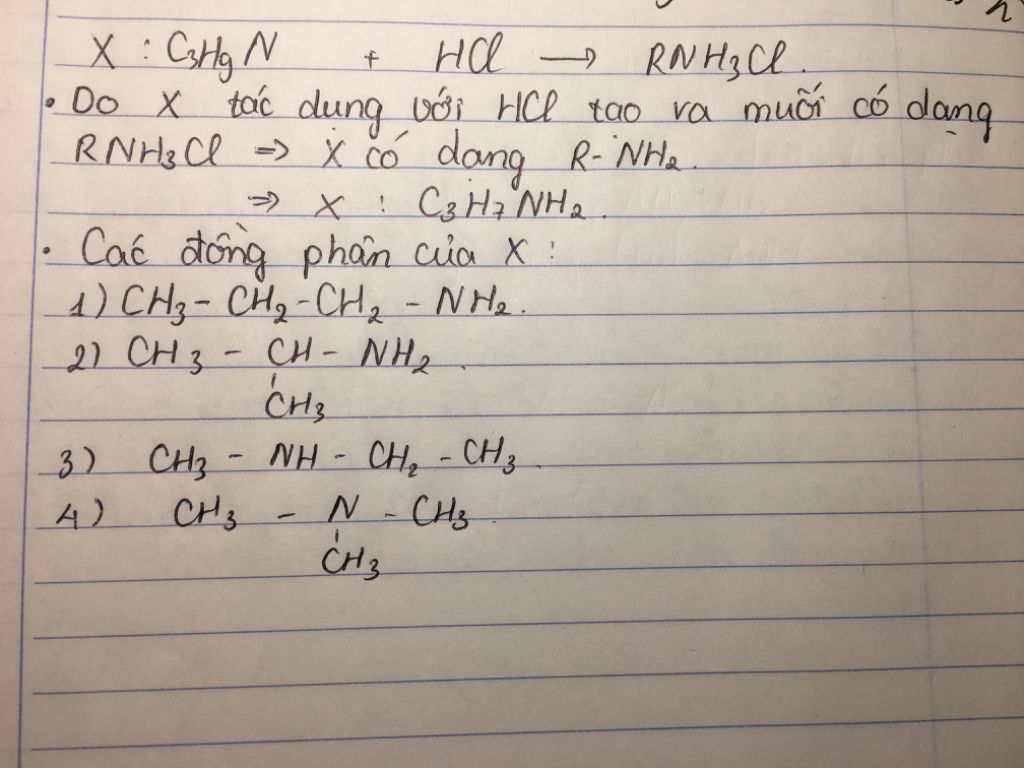 X : C₃H₉N + HCl → RNH₃Cl.
• Do X tác dụng với HCl tạo ra muối có dạng
RNH₃Cl => X có dạng R-NH₂.
=> X : C₃H₇NH₂.
• Các đồng phân của X :
1) CH₃ - CH₂ - CH₂ - NH₂.
2) CH₃ - CH - NH₂.
CH₃
3) CH₃ - NH - CH₂ - CH₃.
4) CH₃ - N - CH₃.
CH₃